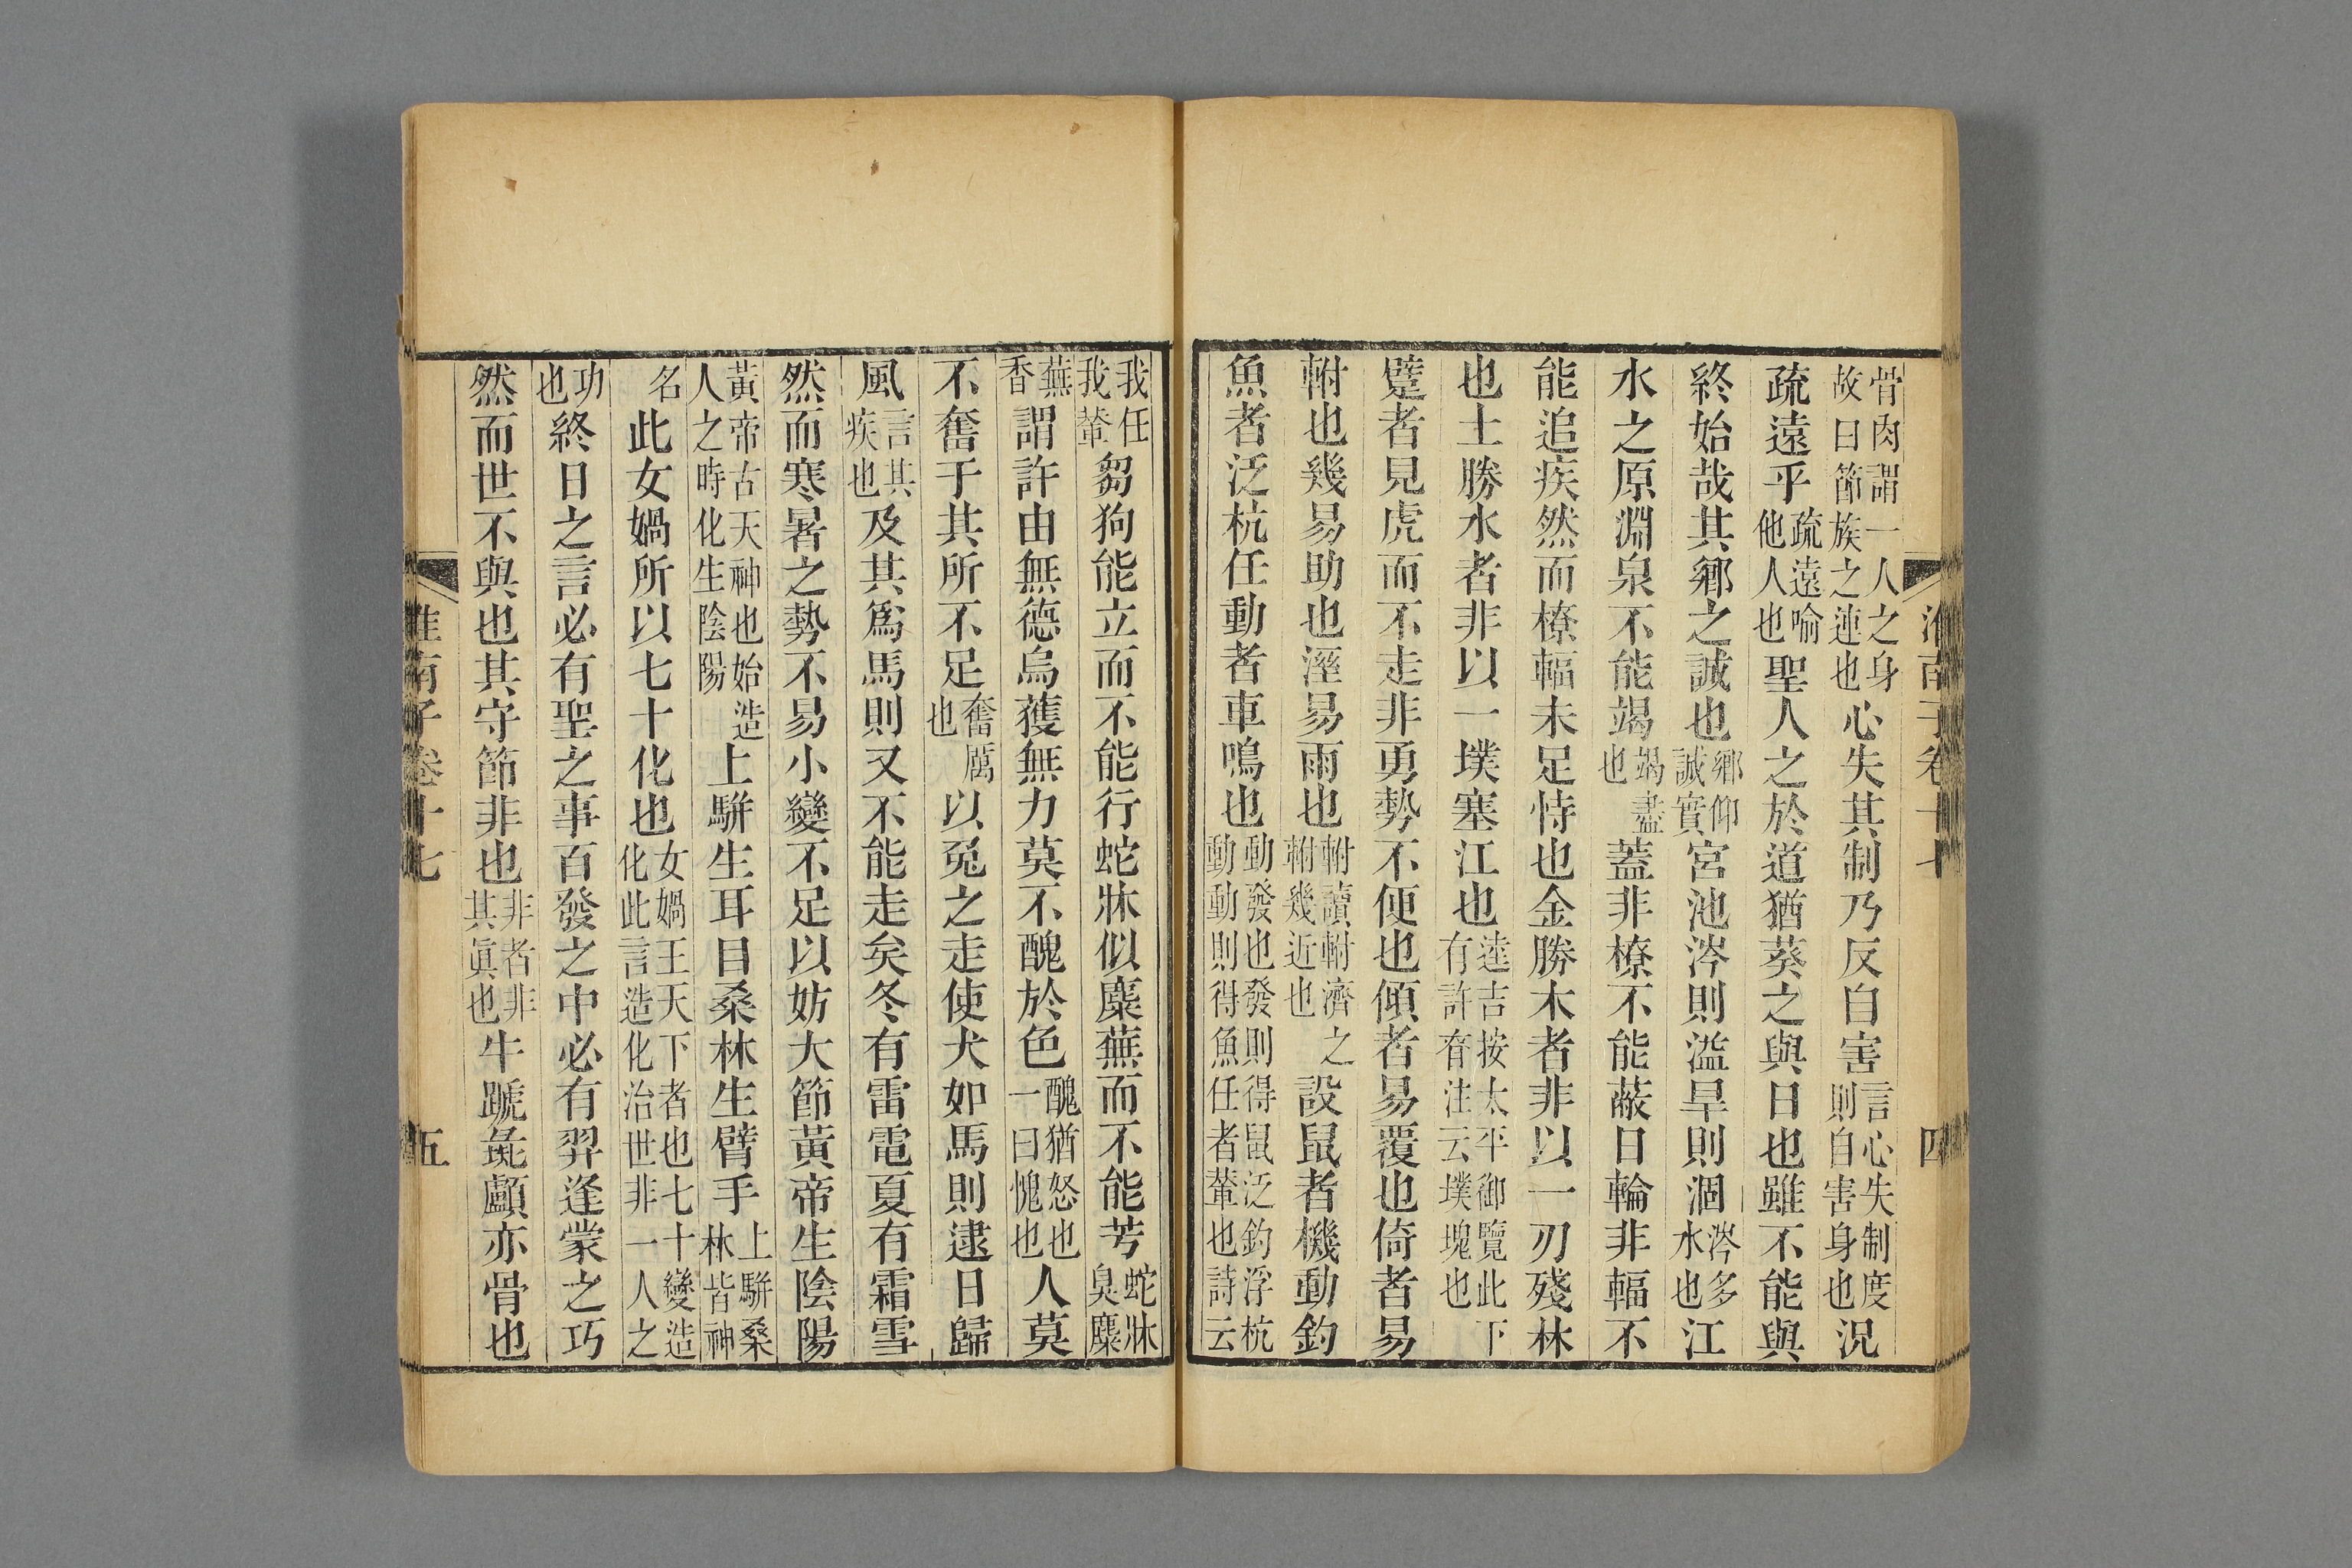 淮南子卷十七 四
骨肉謂一人之身故曰節族之連也心失其制乃反自害言心失制度則自害身也況
疏遠乎疏遠喻他人也聖人之於道猶葵之與日也雖不能與
終始哉其鄉之誠也鄉仰誠實宮池涔則溢旱則涸涔多水也江
水之原淵泉不能竭竭盡也蓋非橑不能蔽日輪非輻不
能追疾然而橑輻未足恃也金勝木者非以一刃殘林
也土勝水者非以一墣塞江也逵吉按太平御覽此下有許昚注云墣塊也
躄者見虎而不走非勇勢不便也傾者易覆也倚者易
軵也幾易助也溼易雨也軵讀軵濟之軵幾近也設鼠者機動釣
魚者泛杭任動者車鳴也動發也發則得鼠泛釣浮杭動動則得魚任者輦也詩云
我任我輦芻狗能立而不能行蛇牀似麋蕪而不能芳蛇牀臭麋
蕪香謂許由無德烏獲無力莫不醜於色醜猶怒也一曰愧也人莫
不奮于其所不足奮厲也以兔之走使犬如馬則逮日歸
風言其疾也及其爲馬則又不能走矣冬有雷電夏有霜雪
然而寒暑之勢不易小變不足以妨大節黃帝生陰陽
黃帝古天神也始造人之時化生陰陽上駢生耳目桑林生臂手上駢桑林皆神
名此女媧所以七十化也女媧王天下者也七十變造化此言造化治世非一人之
功也終日之言必有聖之事百發之中必有羿逢蒙之巧
然而世不與也其守節非也非者非其眞也牛蹏彘顱亦骨也
淮南子卷十七 五